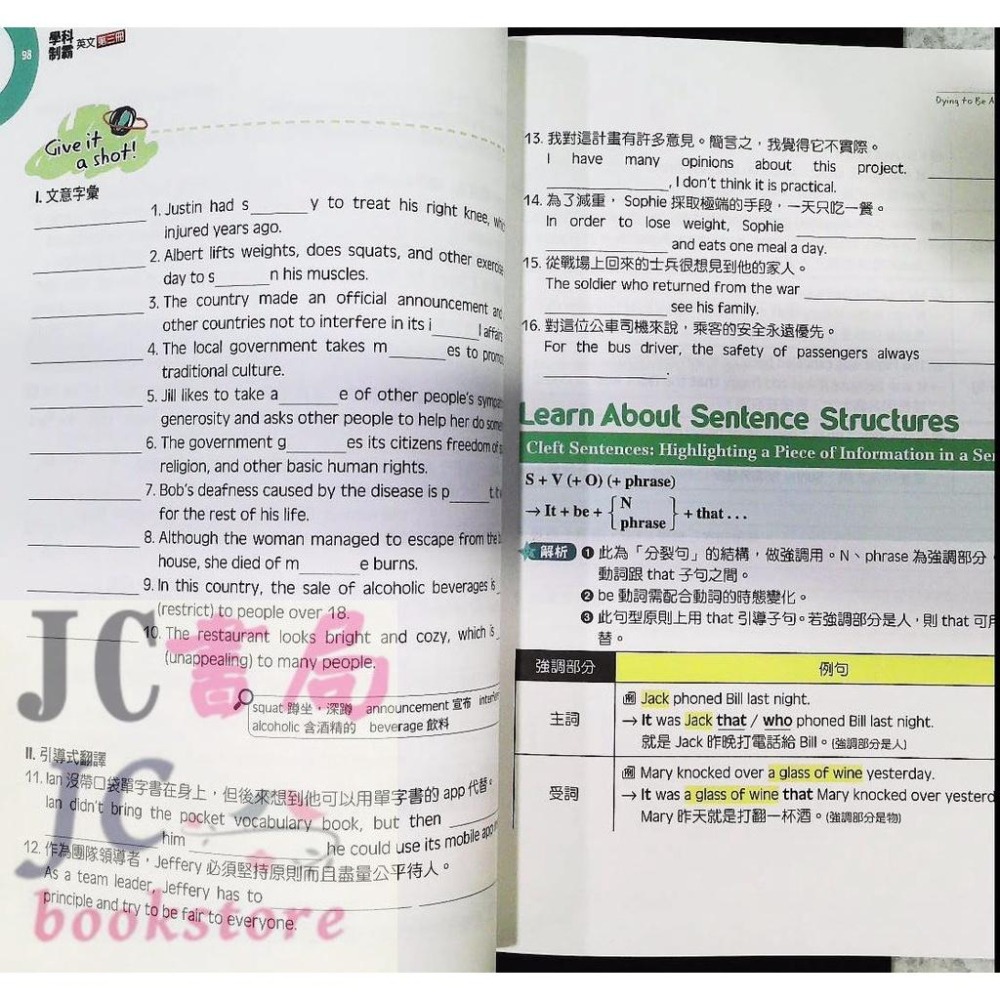 98
學科
制霸 英文 第三冊
Give it
a shot!
I. 文意字彙
1. Justin had s______y to treat his right knee,
injured years ago.
2. Albert lifts weights, does squats, and other exercise
day to s______n his muscles.
3. The country made an official announcement and
other countries not to interfere in its i______l affairs
4. The local government takes m______es to promo
traditional culture.
5. Jill likes to take a______e of other people's sympa
generosity and asks other people to help her do some
6. The government g______es its citizens freedom of s
religion, and other basic human rights.
7. Bob's deafness caused by the disease is p______t.
for the rest of his life.
8. Although the woman managed to escape from the
house, she died of m______e burns.
9. In this country, the sale of alcoholic beverages is
(restrict) to people over 18.
10. The restaurant looks bright and cozy, which is
(unappealing) to many people.
squat 蹲坐,深蹲 announcement 宣布 interfere
alcoholic 含酒精的 beverage 飲料
II. 引導式翻譯
11. Ian 沒帶口袋單字書在身上,但後來想到他可以用單字書的 app 代替。
Ian didn't bring the pocket vocabulary book, but then ______
______ him ______ he could use its mobile app
12. 作為團隊領導者,Jeffery 必須堅持原則而且盡量公平待人。
As a team leader, Jeffery has to ______
principle and try to be fair to everyone.
JC書局
JC
bookstore
Dying to Be A
13. 我對這計畫有許多意見。簡言之,我覺得它不實際。
I have many opinions about this project.
______, I don't think it is practical.
14. 為了減重,Sophie 採取極端的手段,一天只吃一餐。
In order to lose weight, Sophie ______
______ and eats one meal a day.
15. 從戰場上回來的士兵很想見到他的家人。
The soldier who returned from the war ______
______ see his family.
16. 對這位公車司機來說,乘客的安全永遠優先。
For the bus driver, the safety of passengers always
______.
Learn About Sentence Structures
Cleft Sentences: Highlighting a Piece of Information in a Sen
S + V (+ O) (+ phrase)
→ It + be + { N
phrase } + that . . .
解析 ❶ 此為「分裂句」的結構,做強調用。N、phrase 為強調部分,
動詞跟 that 子句之間。
❷ be 動詞需配合動詞的時態變化。
❸ 此句型原則上用 that 引導子句。若強調部分是人,則 that 可用
替。
強調部分 例句
主詞
例 Jack phoned Bill last night.
→ It was Jack that / who phoned Bill last night.
就是 Jack 昨晚打電話給 Bill。(強調部分是人)
受詞
例 Mary knocked over a glass of wine yesterday.
→ It was a glass of wine that Mary knocked over yesterd
Mary 昨天就是打翻一杯酒。(強調部分是物)